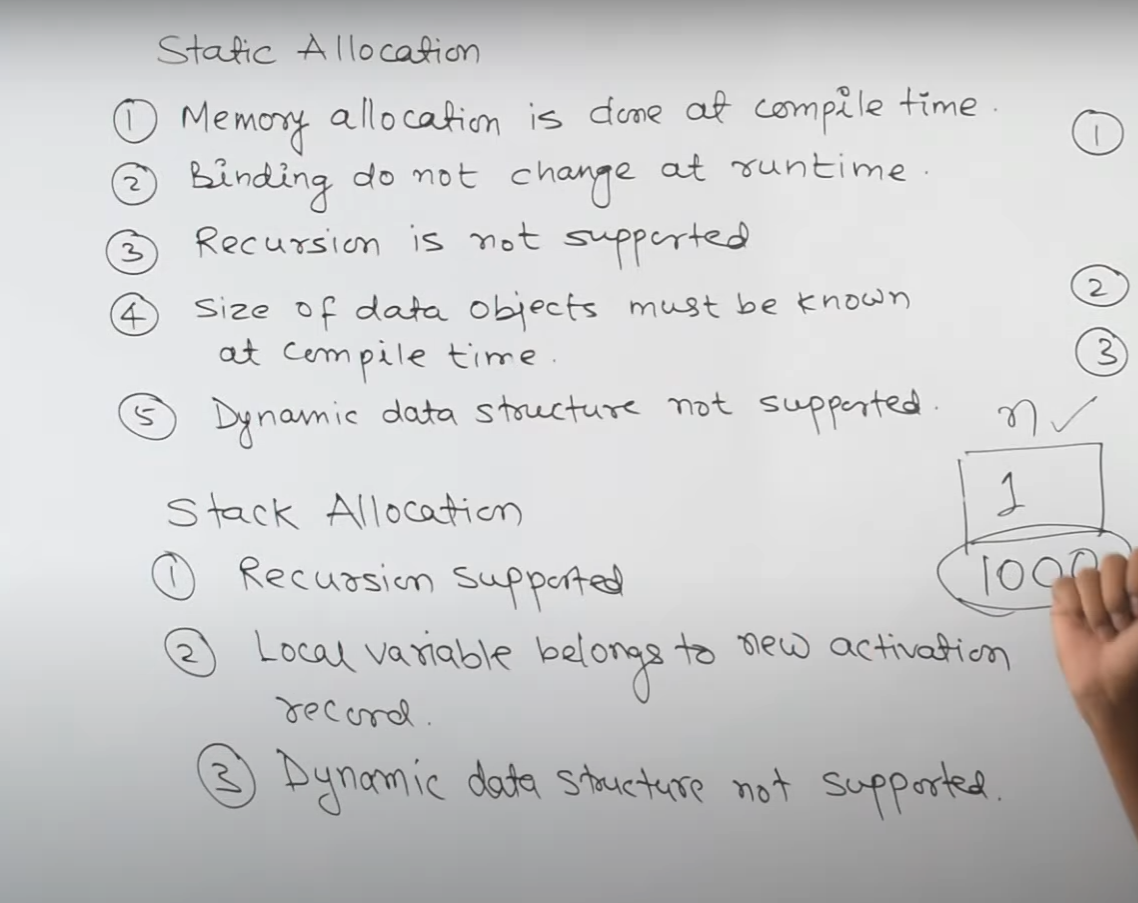 Static Allocation
① Memory allocation is done at compile time.
② Binding do not change at runtime.
③ Recursion is not supported
④ Size of data objects must be known
at compile time.
⑤ Dynamic data structure not supported.
Stack Allocation
① Recursion supported
② Local variable belongs to new activation
record.
③ Dynamic data structure not supported.
①
②
③
n ✓
1
1000